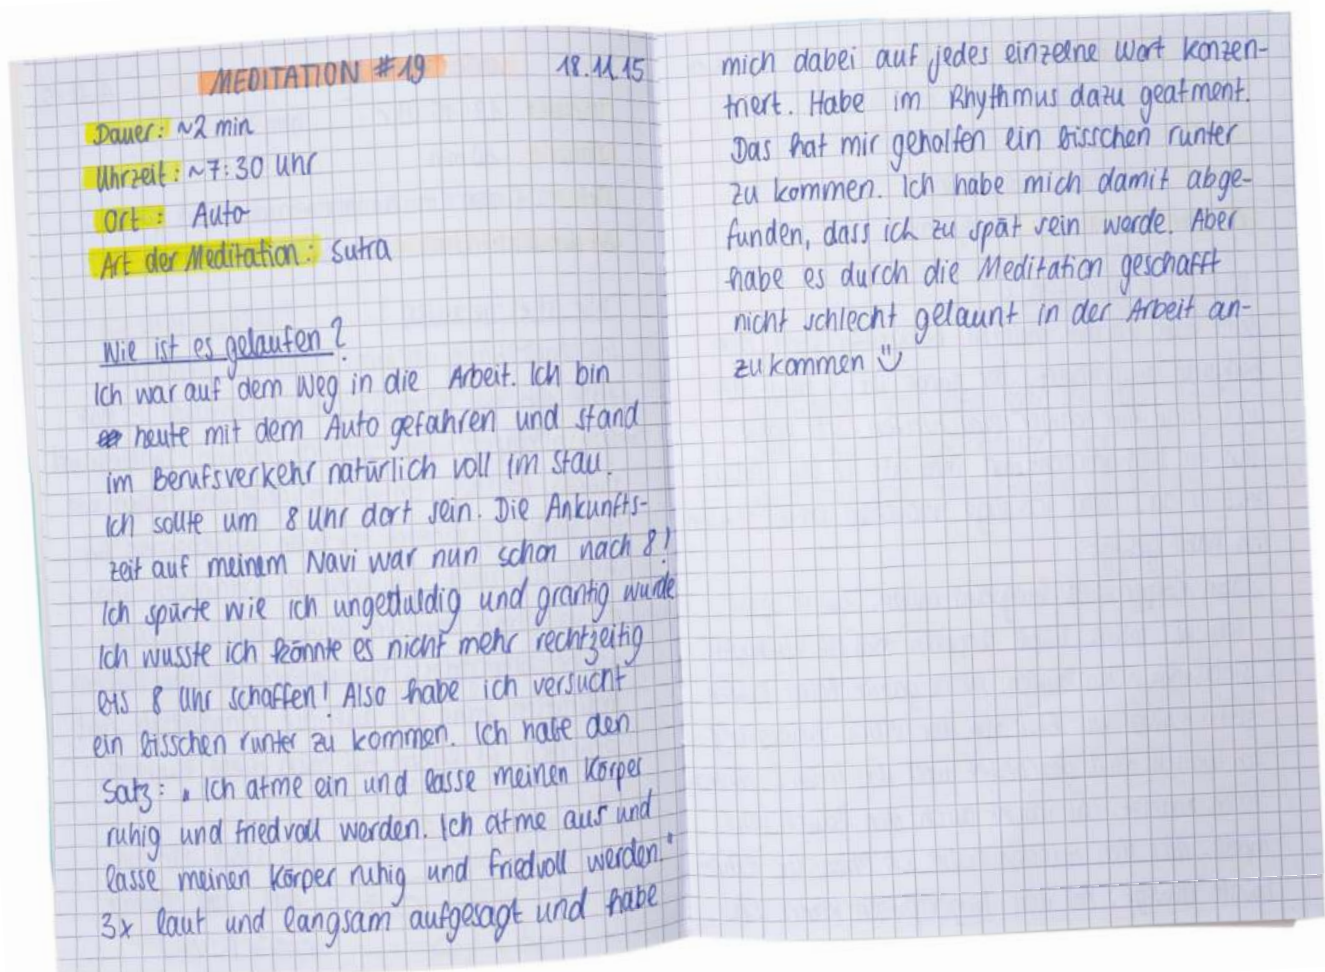 MEDITATION #19
18.11.15
Dauer: ~2 min
Uhrzeit: ~7:30 Uhr
Ort: Auto
Art der Meditation: Sutra
Wie ist es gelaufen?
Ich war auf dem Weg in die Arbeit. Ich bin
heute mit dem Auto gefahren und stand
im Berufsverkehr natürlich voll im Stau.
Ich sollte um 8 Uhr dort sein. Die Ankunfts-
zeit auf meinem Navi war nun schon nach 8!
Ich spürte wie ich ungeduldig und grantig wurde
Ich wusste ich könnte es nicht mehr rechtzeitig
bis 8 Uhr schaffen! Also habe ich versucht
ein bisschen runter zu kommen. Ich habe den
Satz: „Ich atme ein und lasse meinen Körper
ruhig und friedvoll werden. Ich atme aus und
lasse meinen Körper ruhig und friedvoll werden."
3x laut und langsam aufgesagt und habe
mich dabei auf jedes einzelne Wort konzen-
triert. Habe im Rhythmus dazu geatment.
Das hat mir geholfen ein bisschen runter
zu kommen. Ich habe mich damit abge-
funden, dass ich zu spät sein werde. Aber
habe es durch die Meditation geschafft
nicht schlecht gelaunt in der Arbeit an-
zukommen ☺